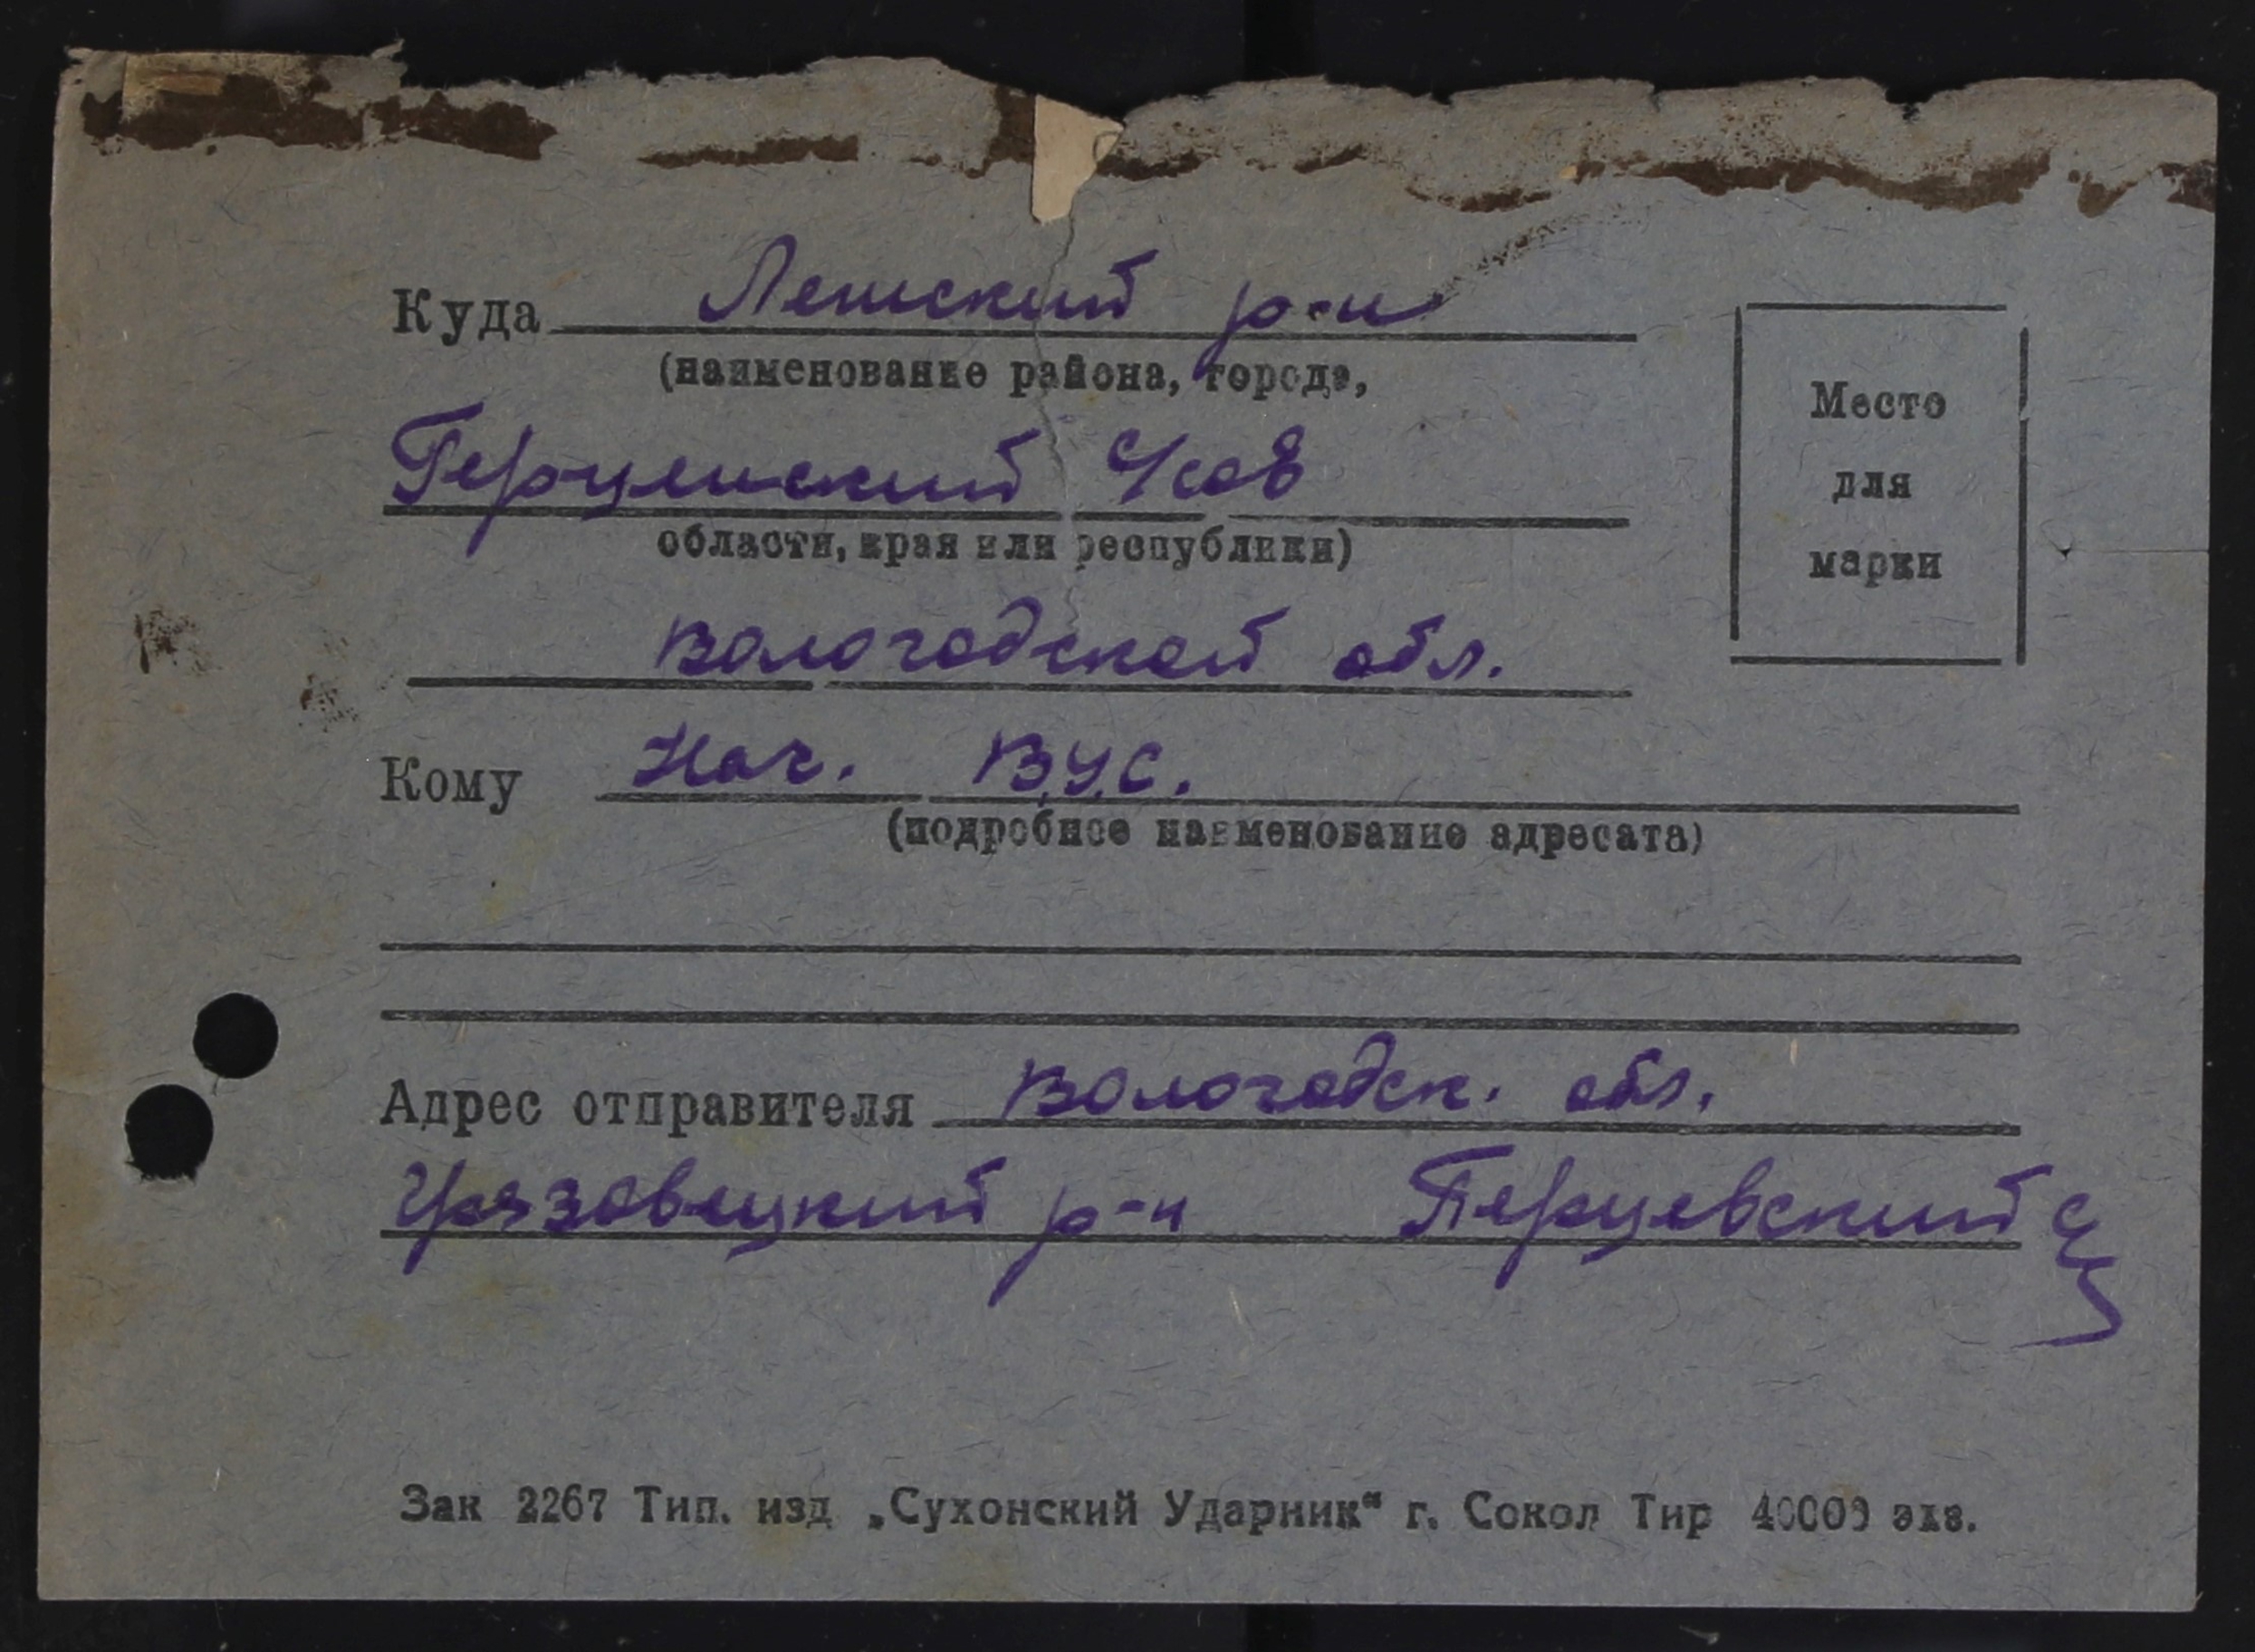 Куда Лежский р-н
(наименование района, города,
Перцевский
области, края или республики)
Вологодской обл.
Кому Нач. В.У.С.
(подробное наименование адресата)
Адрес отправителя Вологодск. обл.
Грязовецкий р-н Перцевский
Место
для
марки
Зак 2267 Тип. изд „Сухонский Ударник“ г. Сокол Тир 40000 экз.